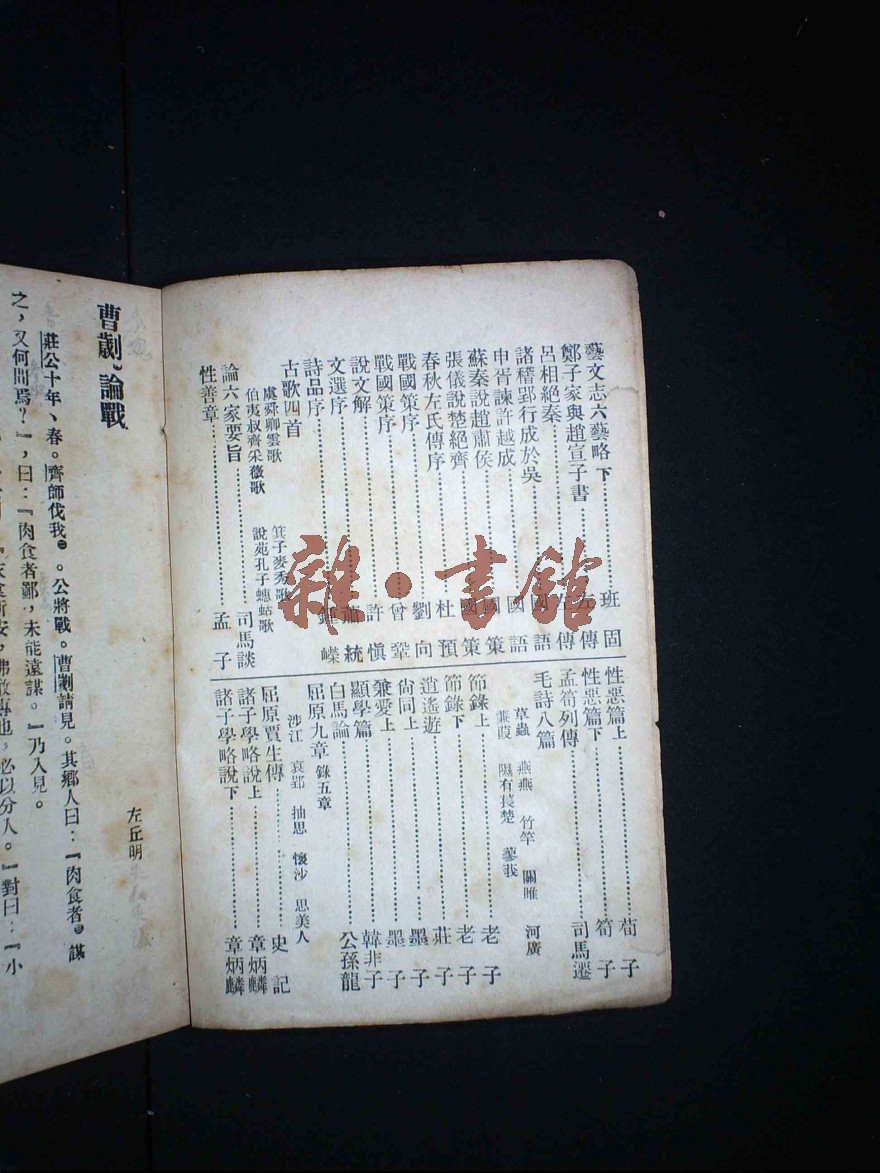 藝文志六藝略 下 班固
鄭子家與趙宣子書 左傳
呂相絕秦 左傳
諸稽郢行成於吳 國語
申胥諫許越成 國語
蘇秦說趙肅侯 國策
張儀說楚絕齊 國策
春秋左氏傳序 杜預
戰國策序 劉向
戰國策序 曾鞏
說文解 許慎
文選序 蕭統
詩品序 鍾嶸
古歌四首
虞舜卿雲歌 箕子麥秀歌
伯夷叔齊采薇歌 說苑孔子蟪蛄歌
論六家要旨 司馬談
性善章 孟子
性惡篇上 荀子
性惡篇下 荀子
孟荀列傳 司馬遷
毛詩八篇
草蟲 燕燕 竹竿 關雎 河廣
蒹葭 隰有萇楚 蓼莪
節錄上 老子
節錄下 老子
逍遙遊 莊子
尚同上 墨子
兼愛上 墨子
顯學篇 韓非子
白馬論 公孫龍
屈原九章 錄五章
涉江 哀郢 抽思 懷沙 思美人
屈原賈生傳 史記
諸子學略說上 章炳麟
諸子學略說下 章炳麟
雜·書館
曹劌論戰
左丘明
莊公十年、春。齊師伐我㊀。公將戰。曹劌請見。其鄉人曰：『肉食者㊁謀
之，又何間焉？』，曰：『肉食者鄙，未能遠謀。』乃入見。